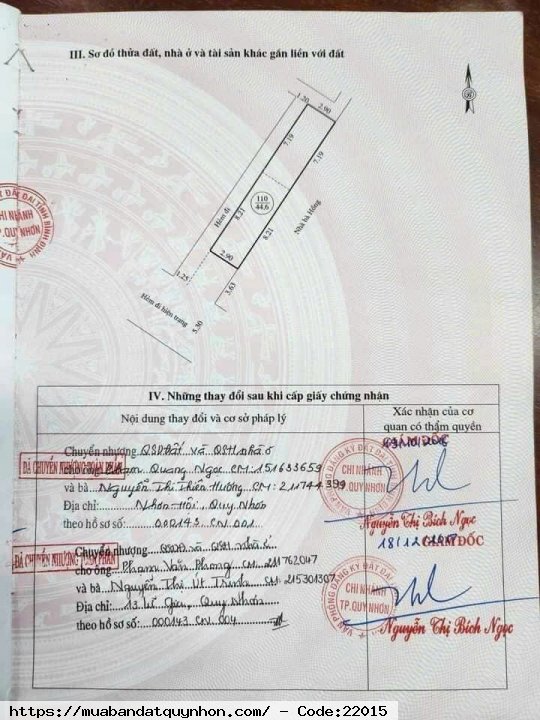 III. Sơ đồ thửa đất, nhà ở và tài sản khác gắn liền với đất
B
1.20
2.90
7.19
7.19
110
44.6
Hẻm đi
8.21
8.21
Nhà bà Hồng
2.90
1.25
3.63
Hẻm đi hiện trạng
5.30
CHI NHÁNH
TP.QUY NHƠN
IV. Những thay đổi sau khi cấp giấy chứng nhận
Nội dung thay đổi và cơ sở pháp lý
Xác nhận của cơ
quan có thẩm quyền
Chuyển nhượng QSDĐất và QSH nhà ở
cho ông Quang Ngọc CM: 151633659
và bà Nguyễn Thị Thiên Hương CM: 211744399
Địa chỉ: Nhơn Hội, Quy Nhơn
theo hồ sơ số: 000143.CN.001
ĐÃ CHUYỂN NHƯỢNG TOÀN PHẦN
GIÁM ĐỐC
VĂN PHÒNG ĐĂNG KÝ ĐẤT ĐAI
CHI NHÁNH
TP.QUY NHƠN
Nguyễn Thị Bích Ngọc
Chuyển nhượng QSDĐ và QSH nhà ở
cho ông Phạm Văn Phong CM: 211762047
và bà Nguyễn Thị Út Trinh CM: 215301307
Địa chỉ: Quy Nhơn
theo hồ sơ số: 000143.CN.004
ĐÃ CHUYỂN NHƯỢNG TOÀN PHẦN
GIÁM ĐỐC
VĂN PHÒNG ĐĂNG KÝ ĐẤT ĐAI
CHI NHÁNH
TP.QUY NHƠN
Nguyễn Thị Bích Ngọc
https://muabandatquynhon.com/ - Code:22015